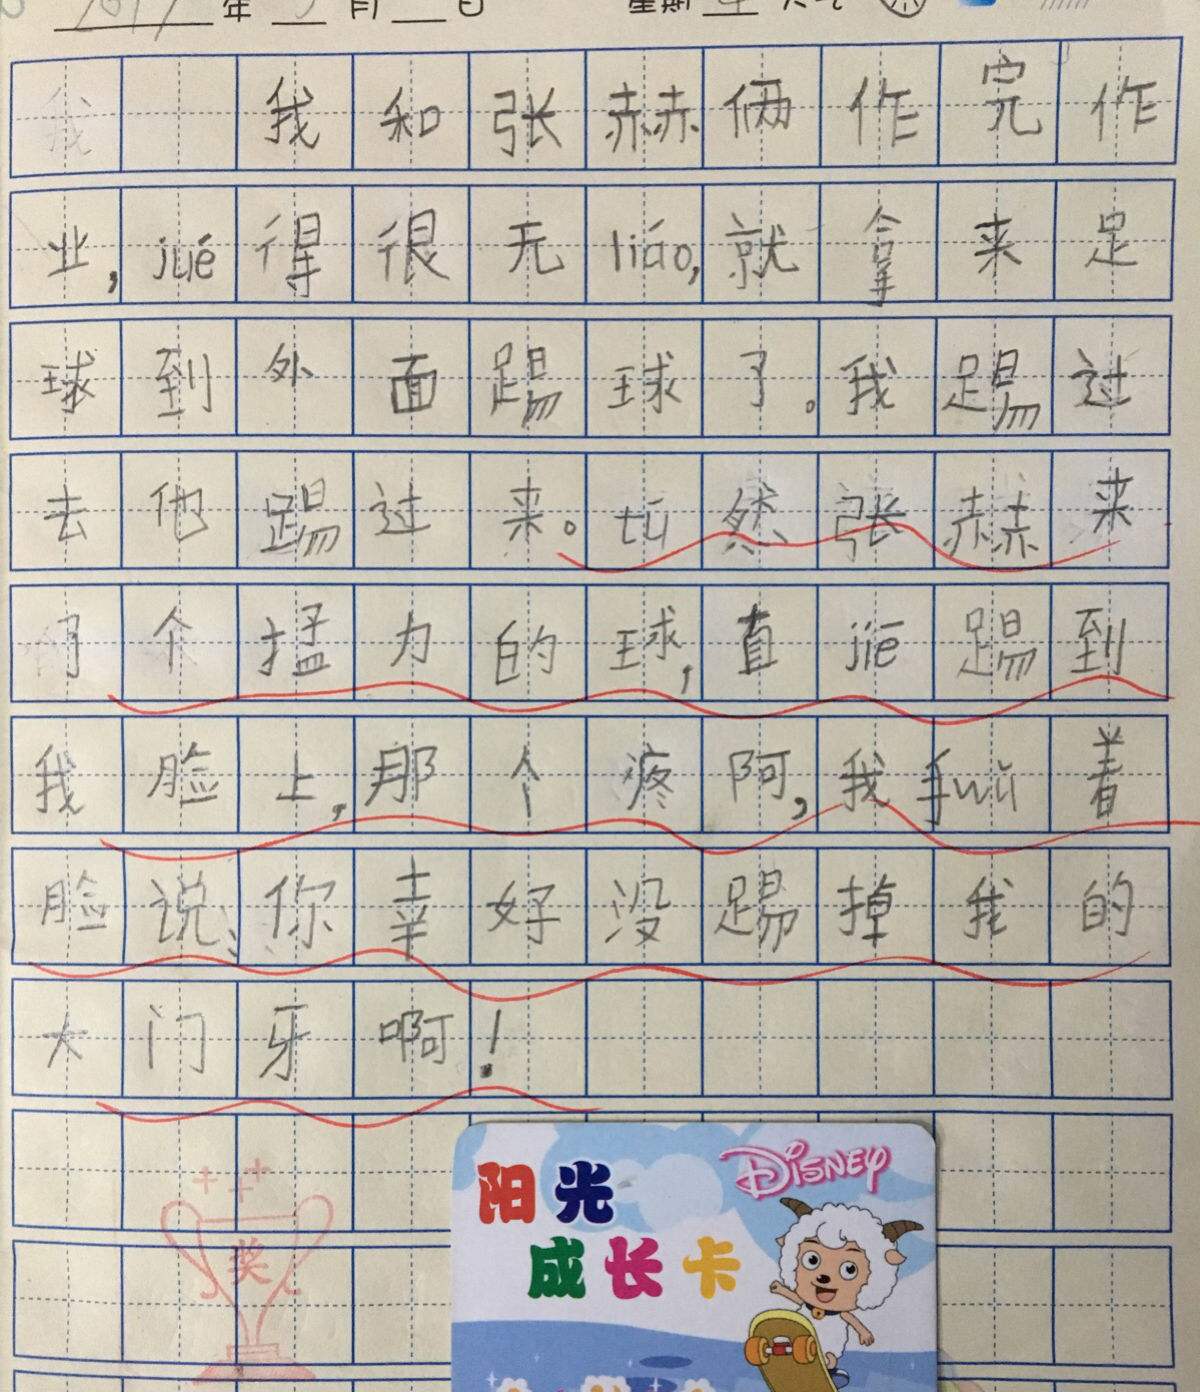 2017年3月 日 星期 天气
我和张赫赫俩作完作
业，jué得很无liáo，就拿来足
球到外面踢球了。我踢过
去他踢过来。tū然张赫赫来
了个猛力的球，直jiē踢到
我脸上，那个疼阿，我手wǔ着
脸说，你幸好没踢掉我的
大门牙啊！
奖
DISNEY
阳光
成长卡